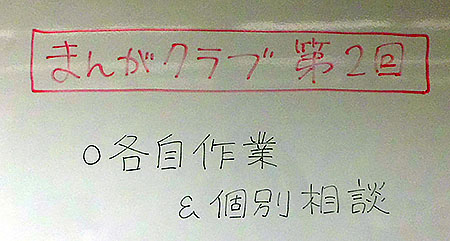 まんがクラブ 第2回
○各自作業
&個別相談